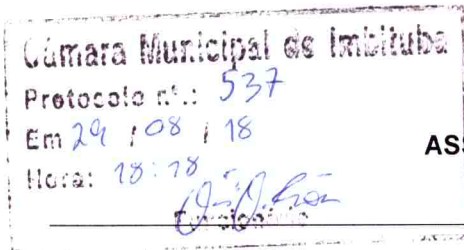 Câmara Municipal de Imbituba
Protocolo nº.: 537
Em 29 / 08 / 18
Hora: 18:18
ASS
Funcionário